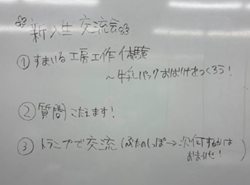 新入生交流会
① すまいる工房工作体験
～牛乳パックおばけをつくろう！
② 質問こたえます！
③ トランプで交流（ぶたのしっぽ→次何するかは
おまかせ！）